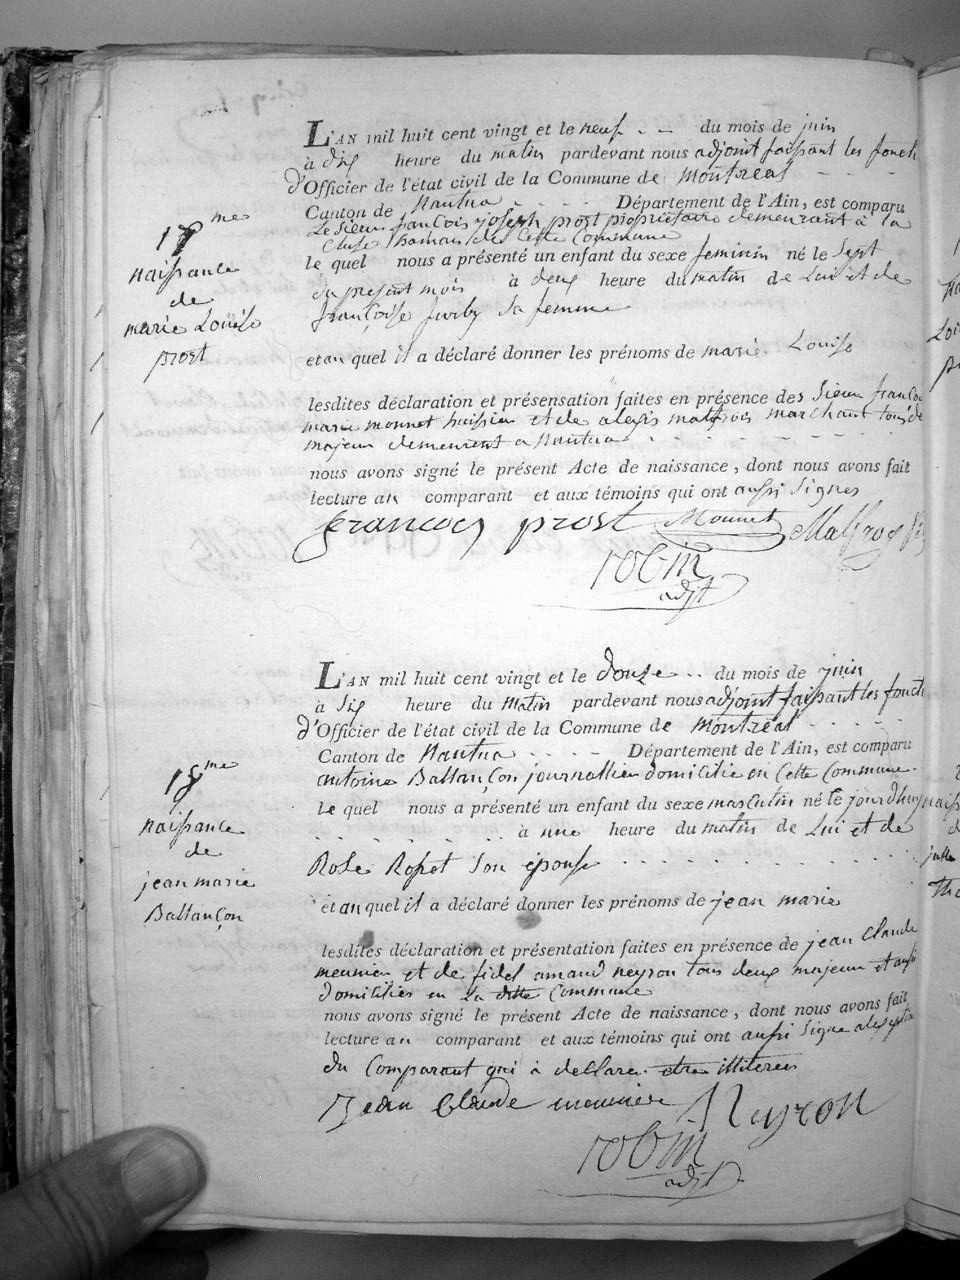 17me
naissance
de
marie Louise
prost
L'AN mil huit cent vingt et le neuf du mois de juin
à dix heure du matin pardevant nous adjoint faissant les fonct
d'Officier de l'état civil de la Commune de Montréal
Canton de Nantua Département de l'Ain, est comparu
Le sieur francois joseph prost propriétaire demeurant à la
Cluse hamau de Cette Commune
le quel nous a présenté un enfant du sexe feminin né le Sept
du present mois à deux heure du matin de Lui et de
françoise sa femme
et au quel il a déclaré donner les prénoms de marie Louise
lesdites déclaration et présensation faites en présence des Sieur francois
marie monnet huissier et de alexis marchant tous de
majeur demeurent a Nantua
nous avons signé le présent Acte de naissance, dont nous avons fait
lecture au comparant et aux témoins qui ont aussi Signes
francois prost Monnet
robin
adjt
18me
naissance
de
jean marie
Ballançon
L'AN mil huit cent vingt et le douze du mois de juin
à Six heure du Matin pardevant nous adjoint faissant les fonct
d'Officier de l'état civil de la Commune de Montréal
Canton de Nantua Département de l'Ain, est comparu
antoine Ballançon journallier domicilie en Cette Commune
le quel nous a présenté un enfant du sexe masculin né le jourdhuy
à une heure du matin de Lui et de
Rose Son épouse
et au quel il a déclaré donner les prénoms de jean marie
lesdites déclaration et présentation faites en présence de jean Claude
meunier et de fidel amand neyron tous deux majeur et aussi
domicilies en La ditte Commune
nous avons signé le présent Acte de naissance, dont nous avons fait
lecture au comparant et aux témoins qui ont aussi Signe
du Comparant qui à declare etre illiteres
Jean Claude meunier Neyron
robin
adjt